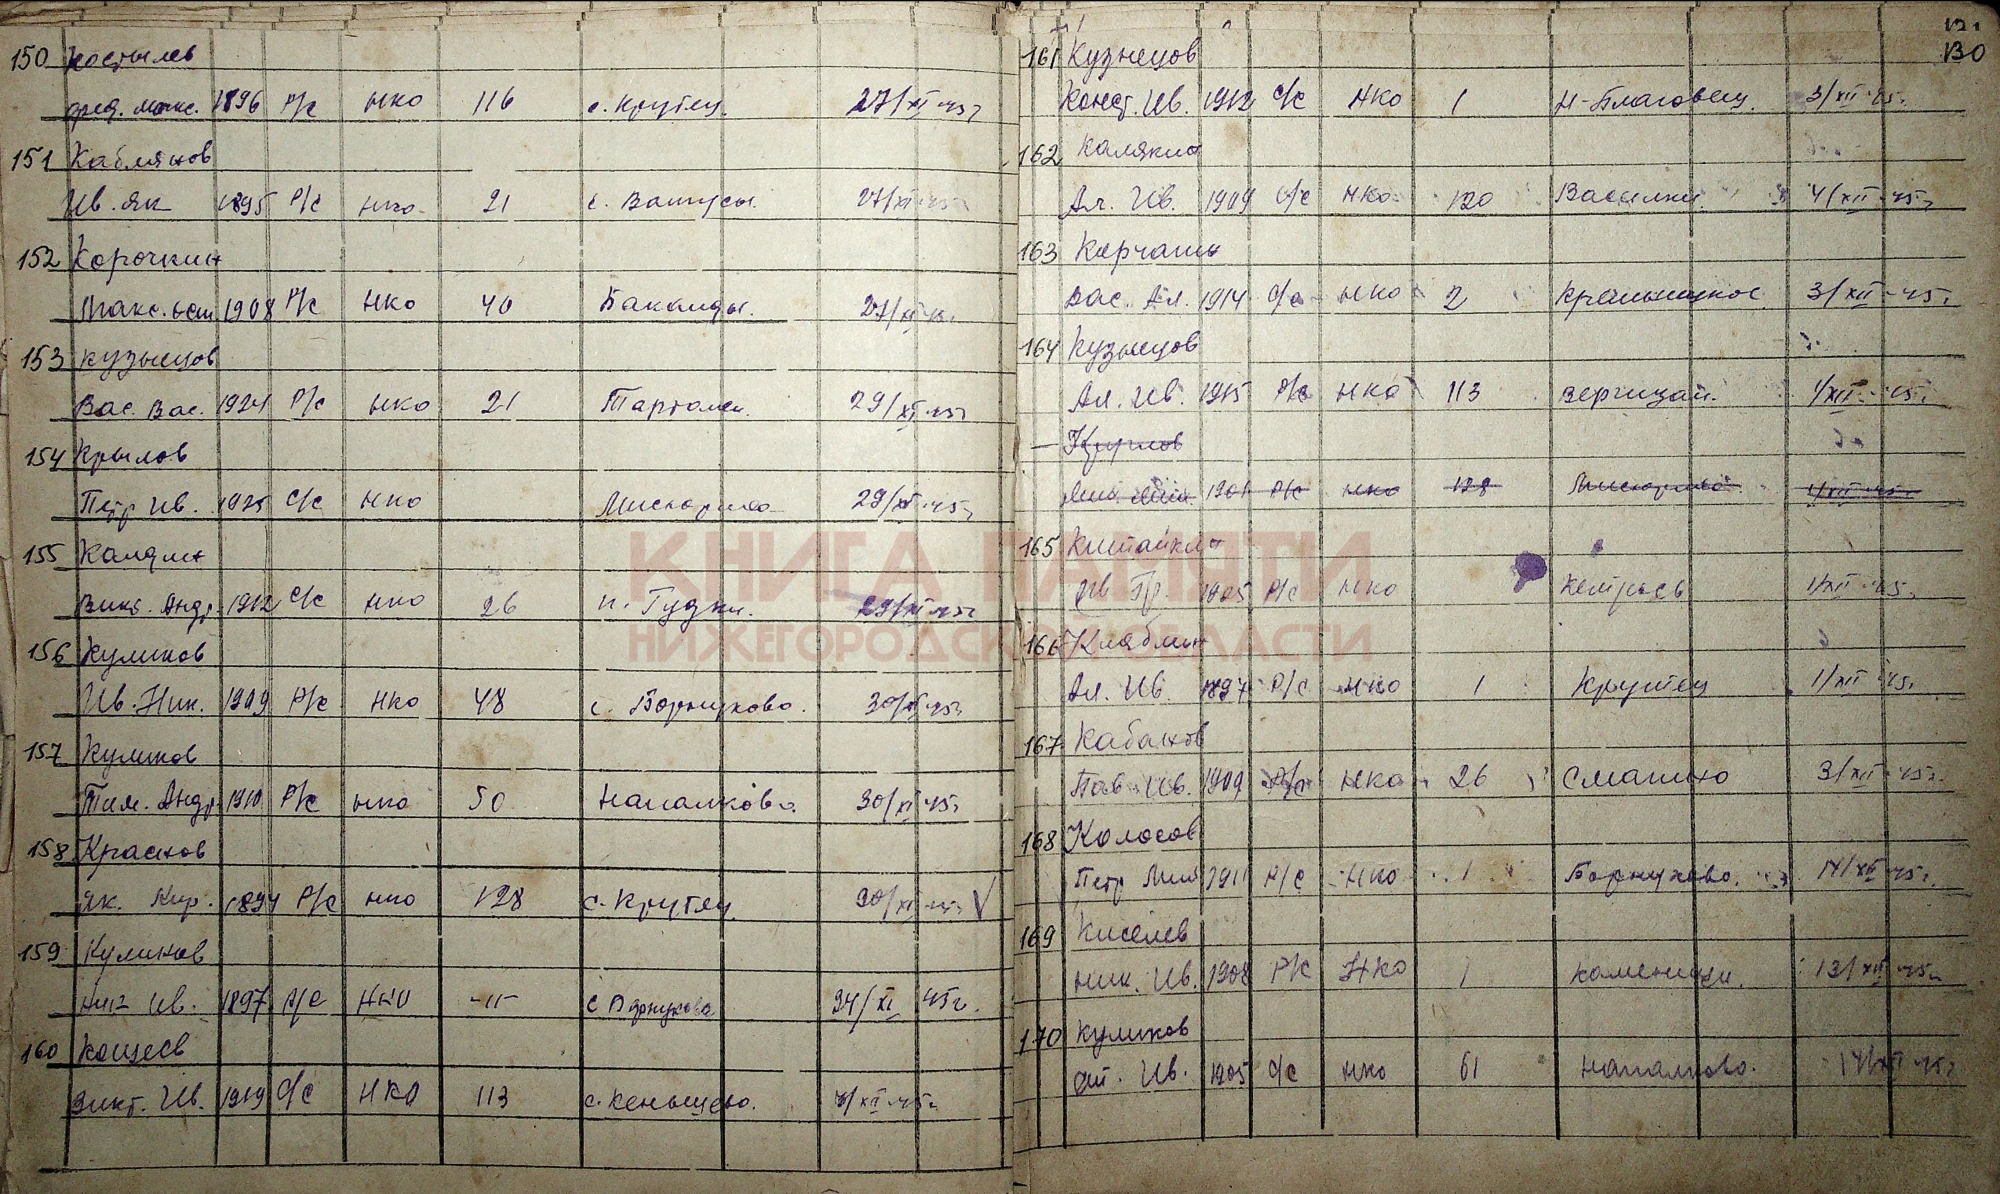 150 Костылев
фед. макс. 1896 Р/с НКО 116 с. Крутец. 27/XI-45г
151 Кабляков
Ив. Як 1895 Р/с НКО 21 с. Ватусы. 27/XI-45г
152 Корочкин
Макс. 1908 Р/с НКО 40 Бакалды. 27/XI-45г.
153 Кузнецов
Вас. Вас. 1924 Р/с НКО 21 Тартолеи. 29/XI-45г
154 Крылов
Петр Ив. 1925 С/с НКО 29/XI-45г
155 Каидин
Викт. Андр. 1912 С/с НКО 26 29/XI-45г
156 Куликов
Ив. Ник. 1909 Р/с НКО 48 с. Борнуково. 30/XI-45г
157 Куликов
Тим. Андр. 1910 Р/с НКО 50 Напалково. 30/XI-45г
158 Краснов
Як. Кир. 1894 Р/с НКО 128 с. Крутец. 30/XI-45г V
159 Куликов
Ив. 1897 Р/с НКО -11- с Борнуково 24/XI 45г.
160 Кащеев
Викт. Ив. 1919 С/с НКО 113 с. Кеньшево. 4/XII-45г
130
161 Кузнецов
Конст. Ив. 1912 С/с НКО 1 Н-Благовещ. 3/XII-45г.
162 Калякин
Ал. Ив. 1909 С/с НКО 120 Василки 4/XII-45г
163 Корчагин
Вас. Ал. 1914 С/с НКО 2 3/XII-45г.
164 Кузнецов
Ал. Ив. 1915 Р/с НКО 113 Вергизай. 1/XII-45г.
— Круглов
1901 Р/с НКО 128 1/XII-45г
165 Китайкин
Ив Гр. 1905 Р/с НКО 1/XII-45г.
166 Клаблин
Ал. Ив. 1897 Р/с НКО 1 Крутец 1/XII-45г.
167 Кабанов
Пав. Ив. 1909 Р/с НКО 26 Смагино 3/XII-45г.
168 Колосов
Петр Мих 1911 Р/с НКО 1 Борнуково. 14/XII-45г.
169 Киселев
Ник. Ив. 1908 Р/с НКО 1 Каменищи. 13/XII-45г
170 Куликов
Ив. 1905 С/с НКО 61 Напалково. 17/XII-45г
КНИГА ПАМЯТИ
НИЖЕГОРОДСКОЙ ОБЛАСТИ